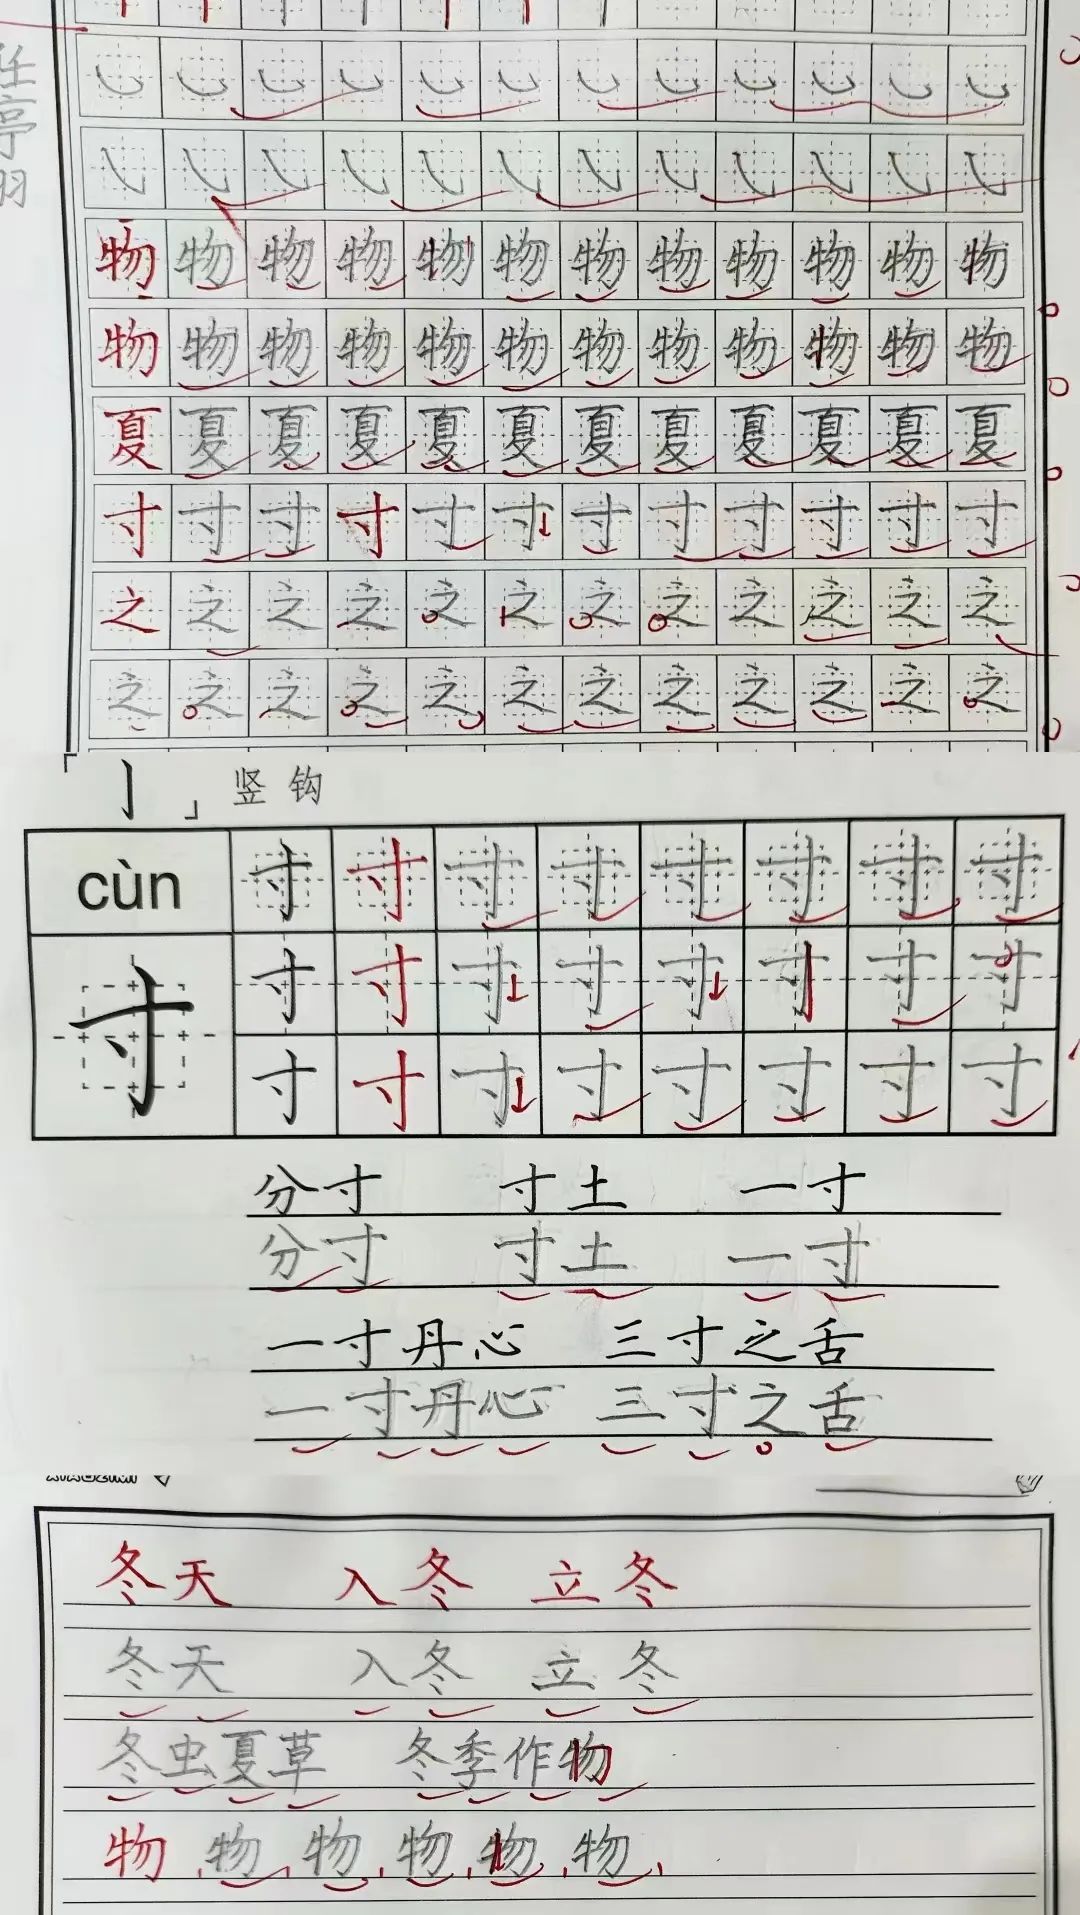 汪亭羽
物物物物物物物物物物物物
物物物物物物物物物物物物
夏夏夏夏夏夏夏夏夏夏夏夏
寸寸寸寸寸寸寸寸寸寸寸寸
之之之之之之之之之之之之
之之之之之之之之之之之之
「亅」竖钩
cùn 寸寸寸寸寸寸寸寸
寸 寸寸寸寸寸寸寸寸
寸寸寸寸寸寸寸寸
分寸 寸土 一寸
分寸 寸土 一寸
一寸丹心 三寸之舌
一寸丹心 三寸之舌
冬天 入冬 立冬
冬天 入冬 立冬
冬虫夏草 冬季作物
物 物 物 物 物 物